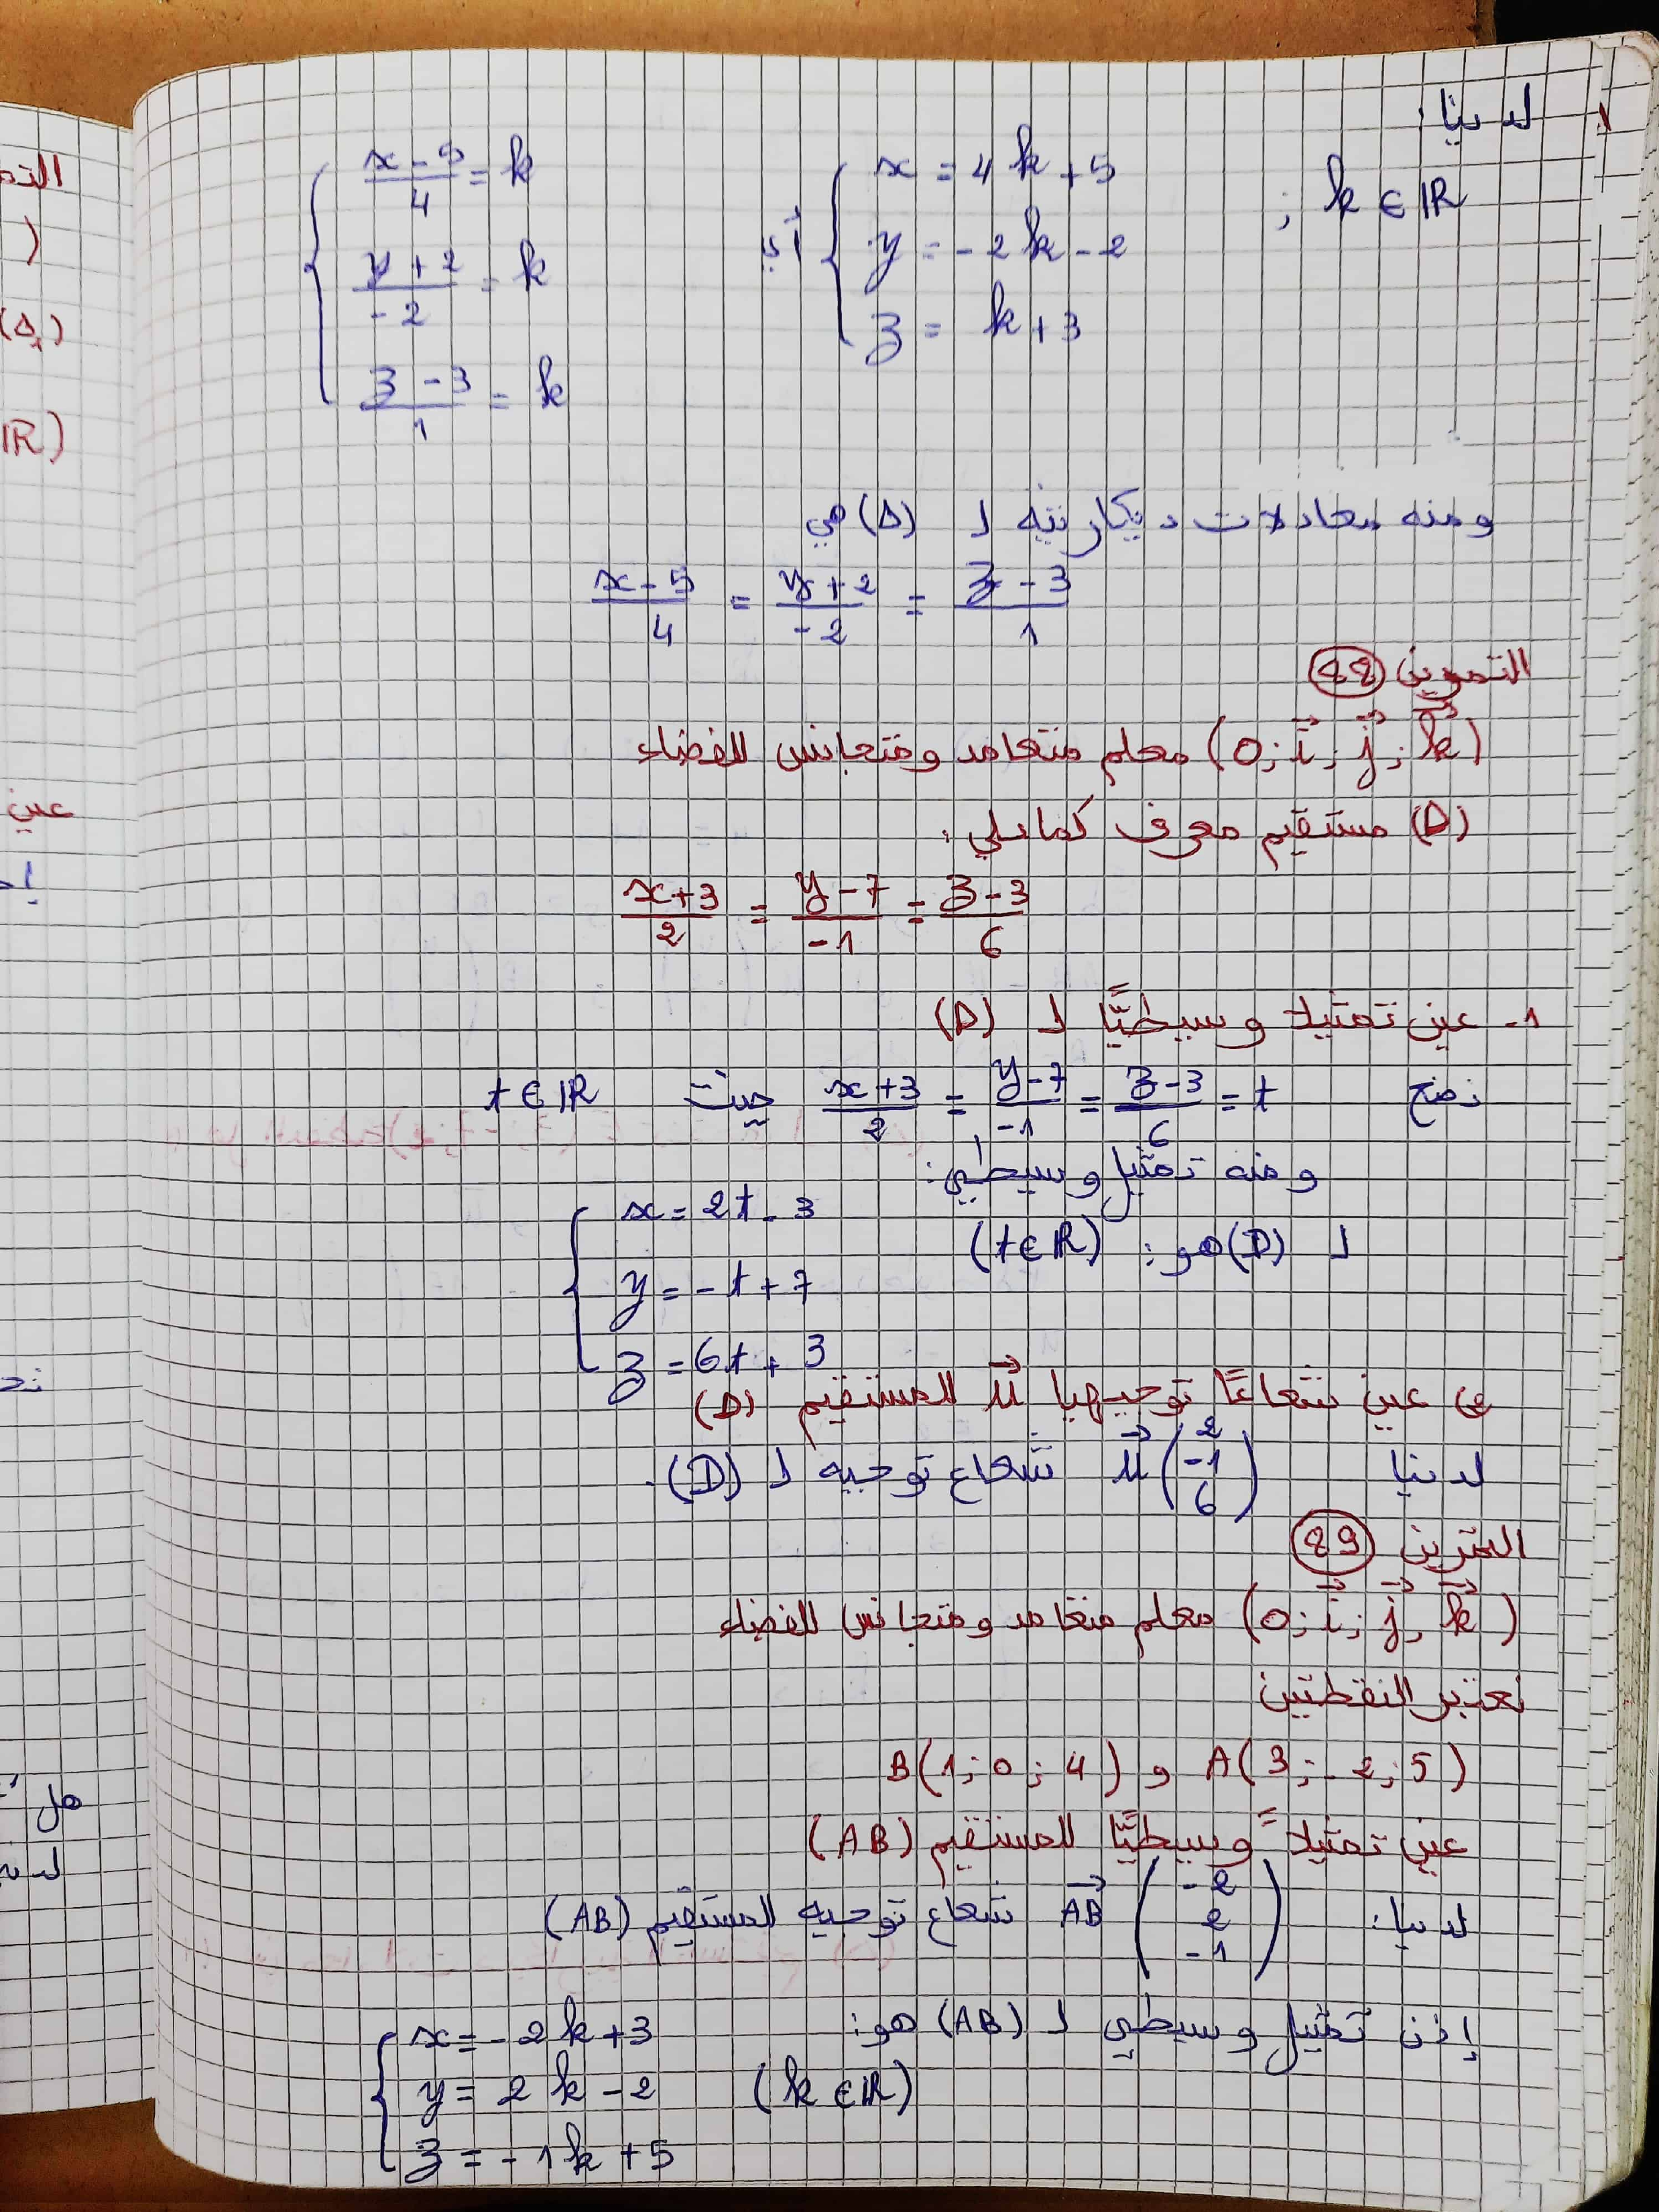 لدينا:
{ x = 4k + 5 ; k ∈ IR
y = -2k - 2
z = k + 3
أي
{ (x - 5)/4 = k
(y + 2)/-2 = k
(z - 3)/1 = k
ومنه معادلات ديكارتية لـ (Δ) هي
(x - 5)/4 = (y + 2)/-2 = (z - 3)/1
التمرين 88
(0; i⃗; j⃗; k⃗) معلم متعامد ومتجانس للفضاء
(D) مستقيم معرف كمايلي:
(x+3)/2 = (y-7)/-1 = (z-3)/6
1- عين تمثيلا وسيطيًّا لـ (D)
نضع (x+3)/2 = (y-7)/-1 = (z-3)/6 = t حيث t ∈ IR
ومنه تمثيل وسيطي:
لـ (D) هو: (t ∈ IR)
{ x = 2t - 3
y = -t + 7
z = 6t + 3
عين شعاعًا توجيهيا u⃗ للمستقيم (D)
لدينا u⃗ (2 -1 6) شعاع توجيه لـ (D).
التمرين 89
(0; i⃗; j⃗; k⃗) معلم متعامد ومتجانس للفضاء
نعتبر النقطتين
A(3; -2; 5) و B(1; 0; 4)
عين تمثيلاً وسيطيًّا للمستقيم (AB)
لدينا: AB⃗ (-2 2 -1) شعاع توجيه للمستقيم (AB)
إذن تمثيل وسيطي لـ (AB) هو:
{ x = -2k + 3
y = 2k - 2 (k ∈ IR)
z = -1k + 5
التم
)
(Δ)
IR)
عين
هل